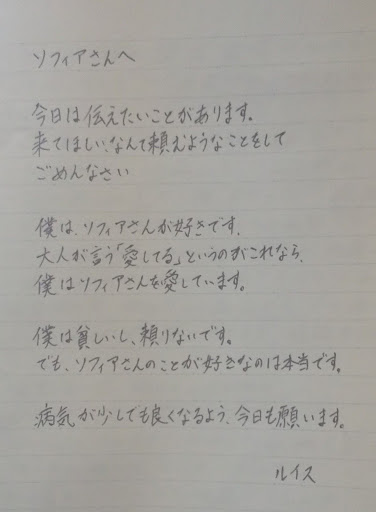 ソフィアさんへ
今日は伝えたいことがあります。
来てほしい、なんて頼むようなことをして
ごめんなさい
僕は、ソフィアさんが好きです。
大人が言う「愛してる」というのがこれなら、
僕はソフィアさんを愛しています。
僕は貧しいし、頼りないです。
でも、ソフィアさんのことが好きなのは本当です。
病気が少しでも良くなるよう、今日も願います。
ルイス